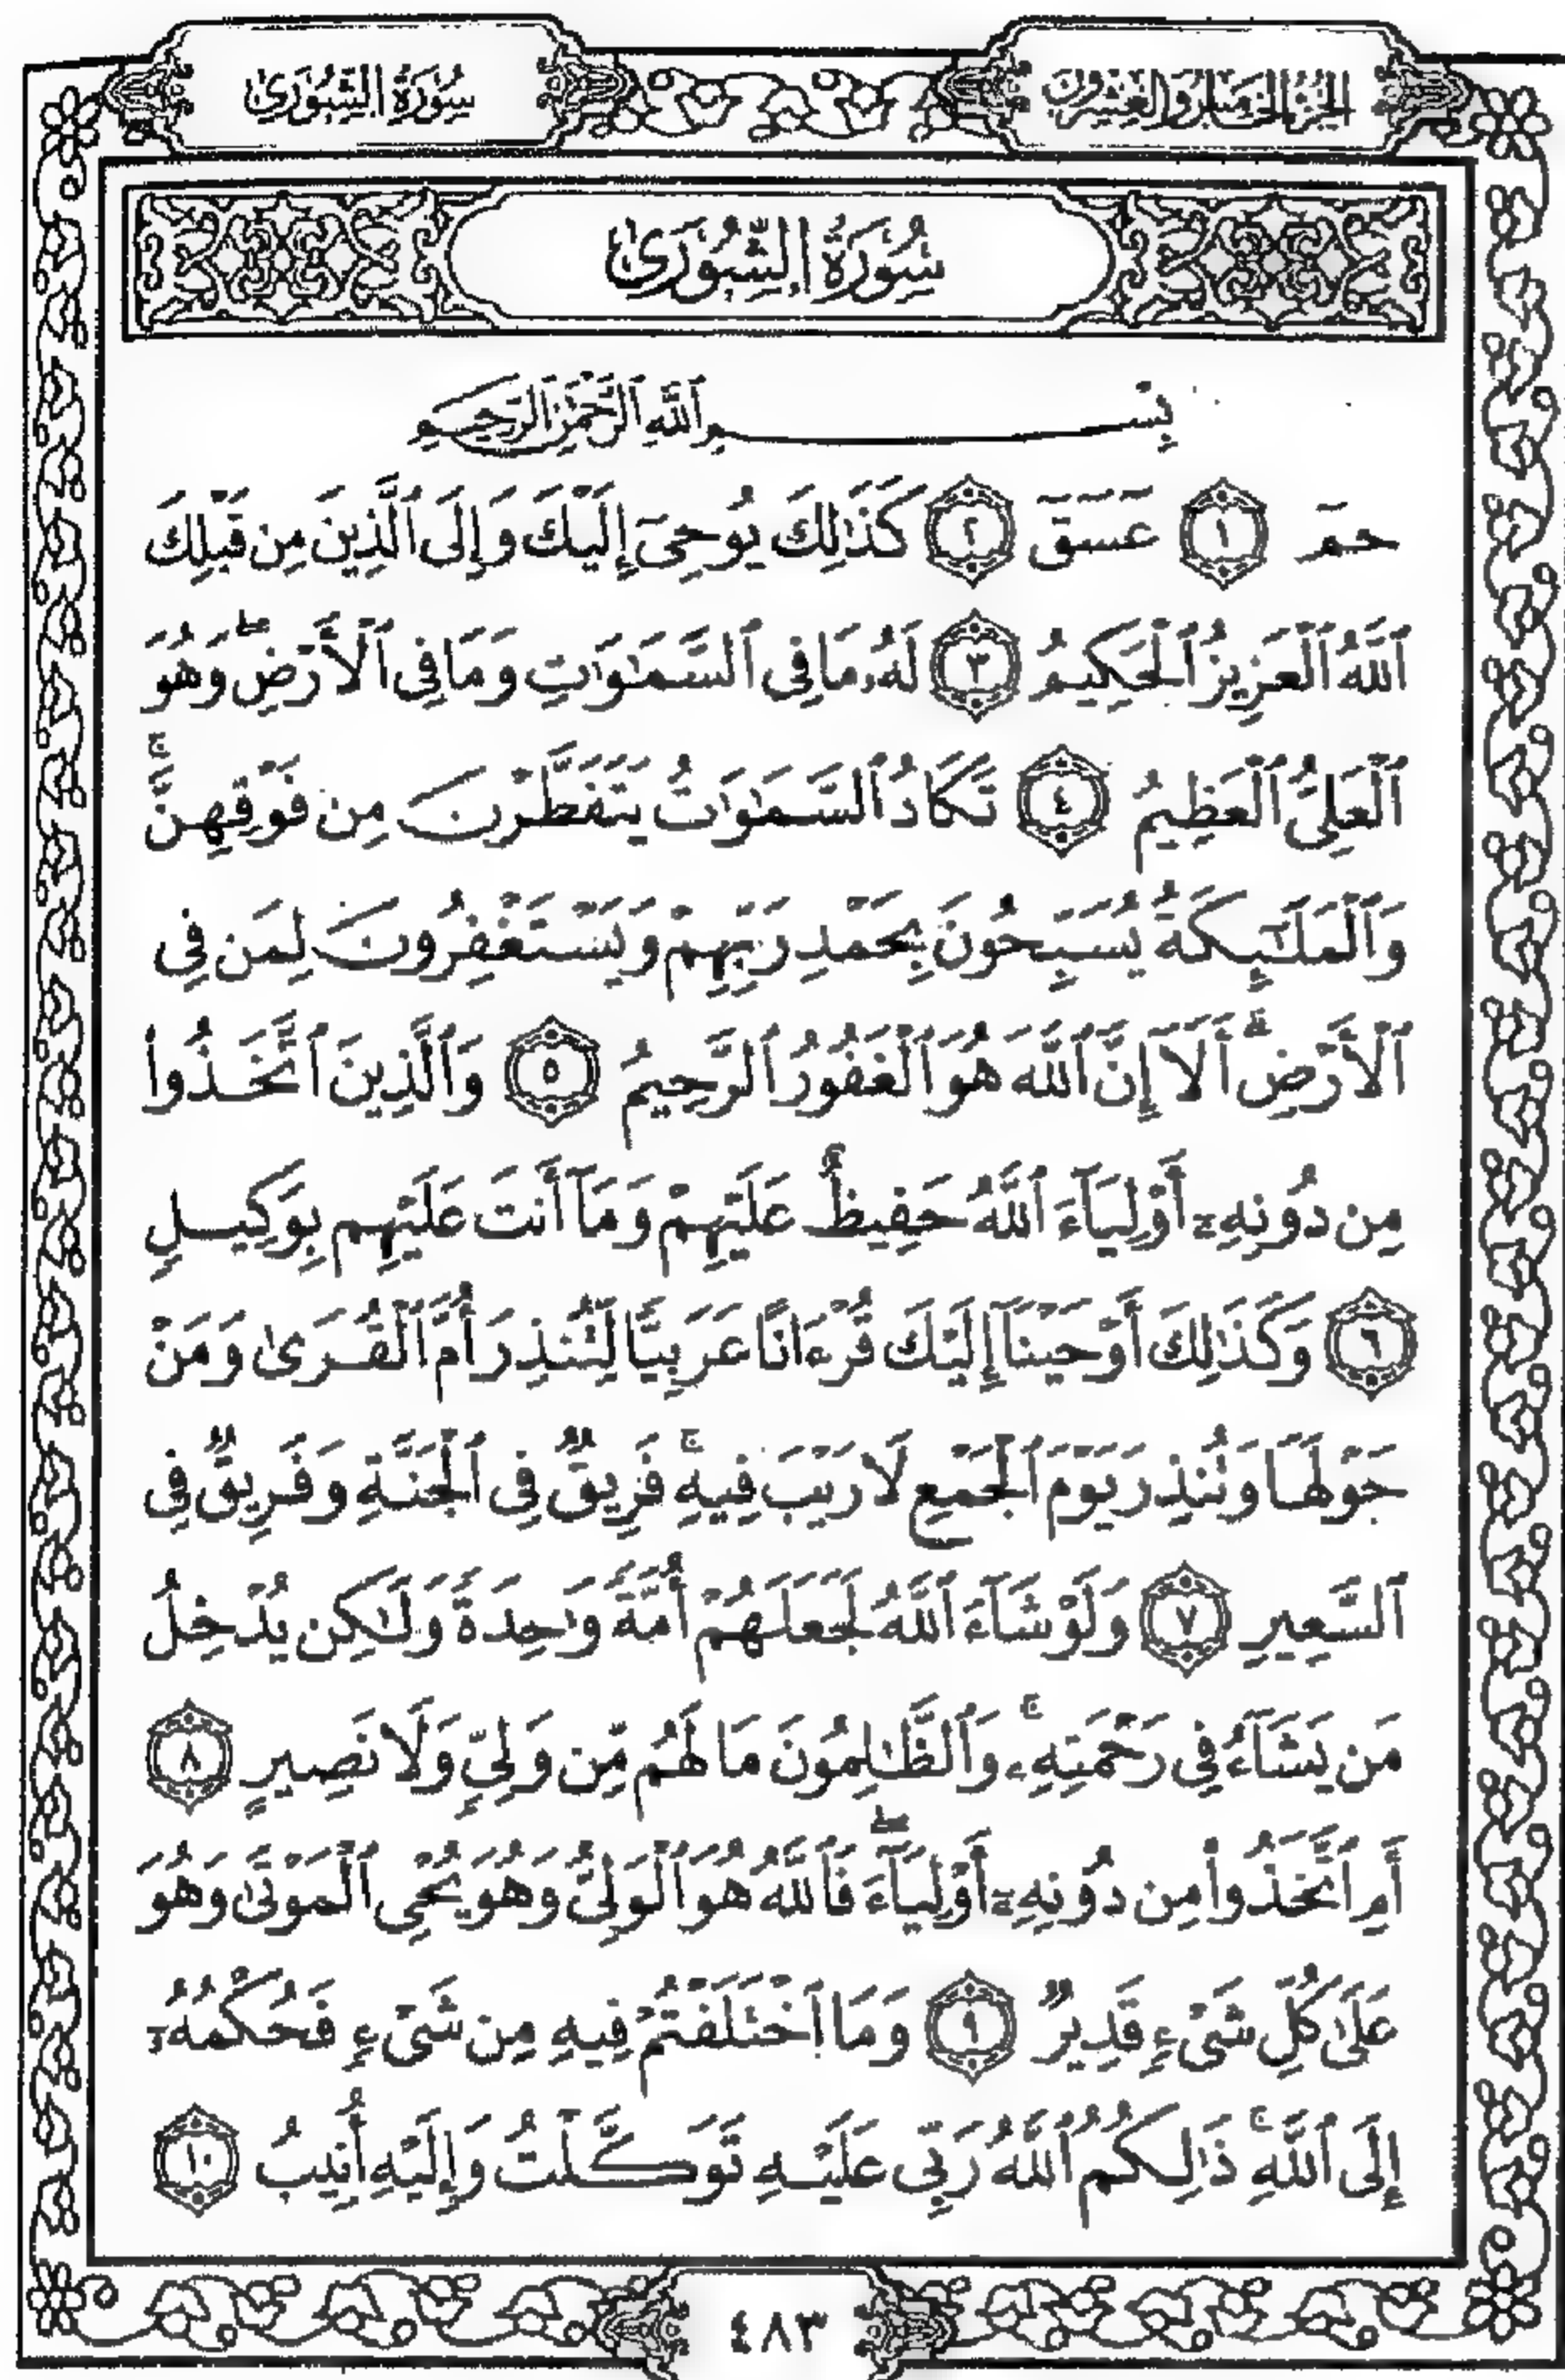 الجزء الخامس والعشرون
سُورَةُ الشُّورَىٰ
سُورَةُ الشُّورَىٰ
بِسْمِ ٱللَّهِ ٱلرَّحْمَٰنِ ٱلرَّحِيمِ
حمٓ ١ عٓسٓقٓ ٢ كَذَٰلِكَ يُوحِىٓ إِلَيْكَ وَإِلَى ٱلَّذِينَ مِن قَبْلِكَ
ٱللَّهُ ٱلْعَزِيزُ ٱلْحَكِيمُ ٣ لَهُۥ مَا فِى ٱلسَّمَٰوَٰتِ وَمَا فِى ٱلْأَرْضِ ۖ وَهُوَ
ٱلْعَلِىُّ ٱلْعَظِيمُ ٤ تَكَادُ ٱلسَّمَٰوَٰتُ يَتَفَطَّرْنَ مِن فَوْقِهِنَّ ۚ
وَٱلْمَلَٰٓئِكَةُ يُسَبِّحُونَ بِحَمْدِ رَبِّهِمْ وَيَسْتَغْفِرُونَ لِمَن فِى
ٱلْأَرْضِ ۗ أَلَآ إِنَّ ٱللَّهَ هُوَ ٱلْغَفُورُ ٱلرَّحِيمُ ٥ وَٱلَّذِينَ ٱتَّخَذُوا۟
مِن دُونِهِۦٓ أَوْلِيَآءَ ٱللَّهُ حَفِيظٌ عَلَيْهِمْ وَمَآ أَنتَ عَلَيْهِم بِوَكِيلٍ
٦ وَكَذَٰلِكَ أَوْحَيْنَآ إِلَيْكَ قُرْءَانًا عَرَبِيًّا لِّتُنذِرَ أُمَّ ٱلْقُرَىٰ وَمَنْ
حَوْلَهَا وَتُنذِرَ يَوْمَ ٱلْجَمْعِ لَا رَيْبَ فِيهِ ۚ فَرِيقٌ فِى ٱلْجَنَّةِ وَفَرِيقٌ فِى
ٱلسَّعِيرِ ٧ وَلَوْ شَآءَ ٱللَّهُ لَجَعَلَهُمْ أُمَّةً وَٰحِدَةً وَلَٰكِن يُدْخِلُ
مَن يَشَآءُ فِى رَحْمَتِهِۦ ۚ وَٱلظَّٰلِمُونَ مَا لَهُم مِّن وَلِىٍّ وَلَا نَصِيرٍ ٨
أَمِ ٱتَّخَذُوا۟ مِن دُونِهِۦٓ أَوْلِيَآءَ ۖ فَٱللَّهُ هُوَ ٱلْوَلِىُّ وَهُوَ يُحْىِ ٱلْمَوْتَىٰ وَهُوَ
عَلَىٰ كُلِّ شَىْءٍ قَدِيرٌ ٩ وَمَا ٱخْتَلَفْتُمْ فِيهِ مِن شَىْءٍ فَحُكْمُهُۥٓ
إِلَى ٱللَّهِ ۚ ذَٰلِكُمُ ٱللَّهُ رَبِّى عَلَيْهِ تَوَكَّلْتُ وَإِلَيْهِ أُنِيبُ ١٠
٤٨٣